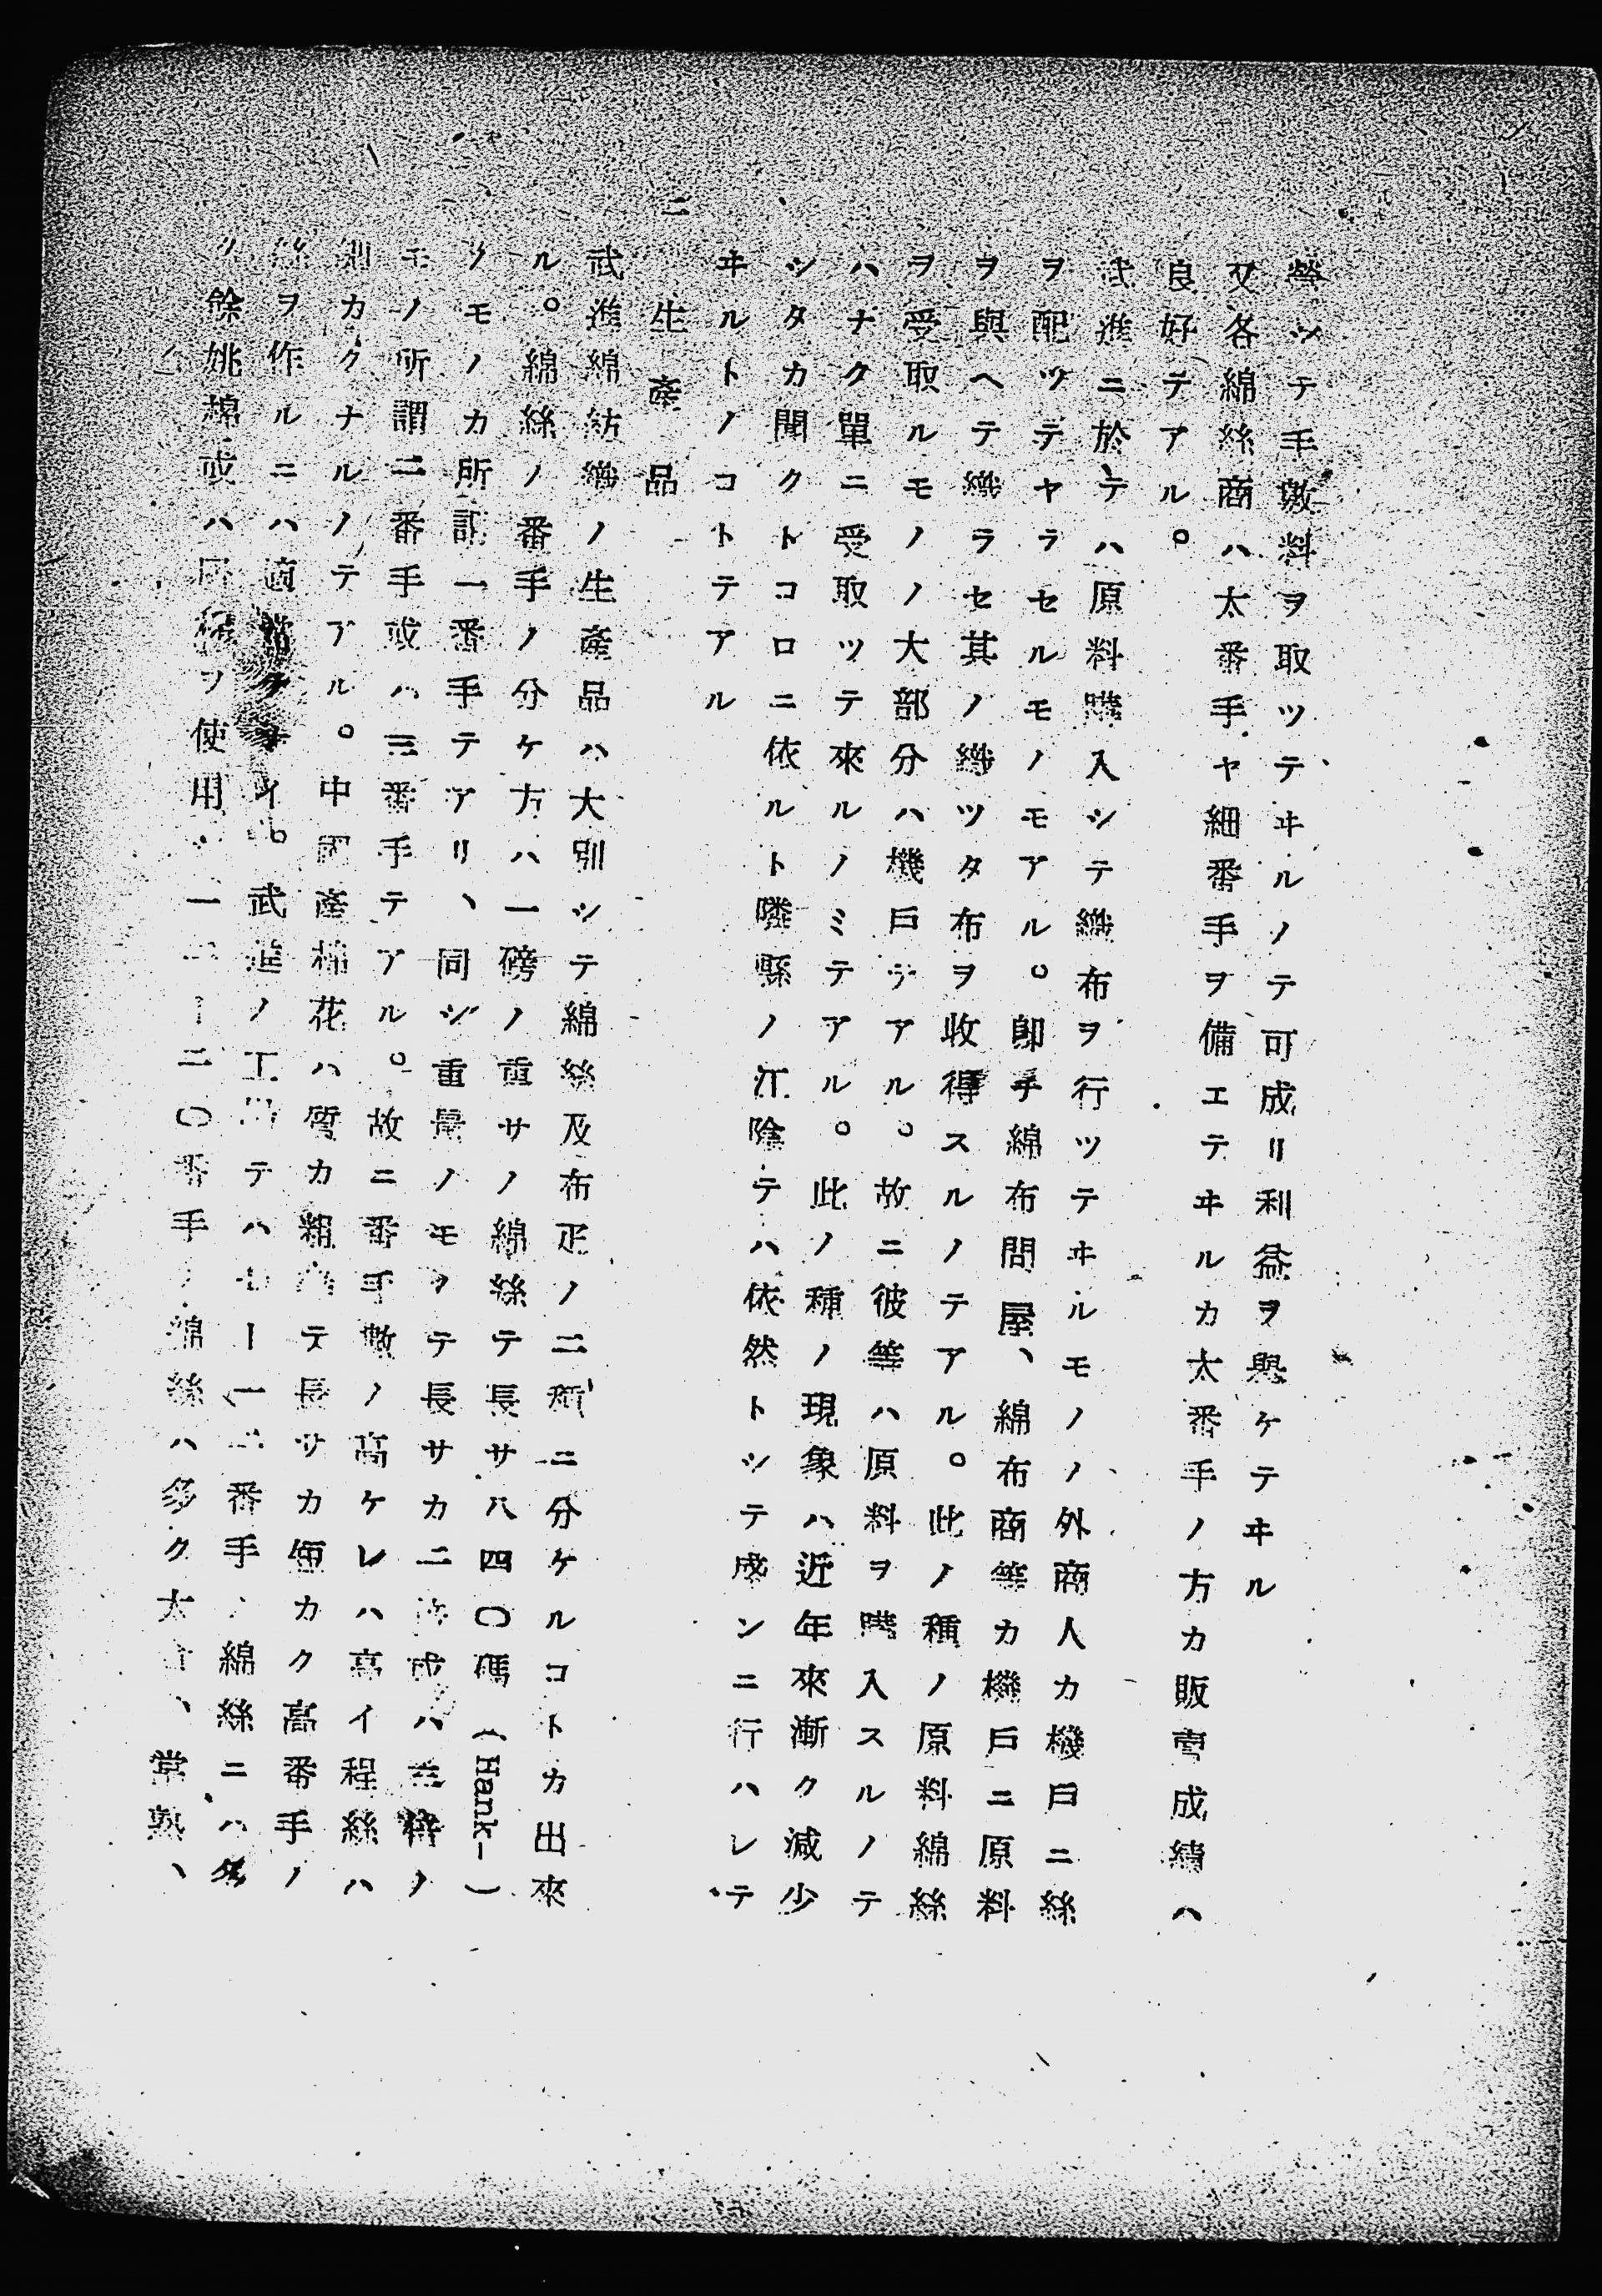 營シテ手數料ヲ取ツテヰルノテ可成リ利益ヲ與ケテヰル
又各綿絲商ハ太番手ヤ細番手ヲ備エテヰルカ太番手ノ方カ販賣成績ハ
良好テアル。
武進ニ於テハ原料購入シテ織布ヲ行ツテヰルモノノ外商人カ機戸ニ絲
ヲ配ツテヤラセルモノモアル。卽チ綿布問屋、綿布商等カ機戸ニ原料
ヲ與ヘテ織ラセ其ノ織ツタ布ヲ收得スルノテアル。此ノ種ノ原料綿絲
ヲ受取ルモノノ大部分ハ機戸テアル。故ニ彼等ハ原料ヲ購入スルノテ
ハナク單ニ受取ツテ來ルノミテアル。此ノ種ノ現象ハ近年來漸ク減少
シタカ聞クトコロニ依ルト隣縣ノ江陰テハ依然トシテ盛ンニ行ハレテ
ヰルトノコトテアル
二 生產品
武進綿紡織ノ生產品ハ大別シテ綿絲及布疋ノ二種ニ分ケルコトカ出來
ル。綿絲ノ番手ノ分ケ方ハ一磅ノ重サノ綿絲テ長サ八四〇碼(Hank-)
ノモノカ所謂一番手テアリ、同ジ重量ノモノテ長サカニ倍或ハ三倍ノ
モノ所謂二番手或ハ三番手テアル。故ニ番手數ノ高ケレハ高イ程絲ハ
細カクナルノテアル。中國產棉花ハ質カ粗テ長サカ短カク高番手ノ
絲ヲ作ルニハ適當テナイ。武進ノ工場テハ番手ノ綿絲ニハ多
ク餘姚棉或ハ棉ヲ使用シ一二〇番手ノ綿絲ハ多ク太倉、常熟、